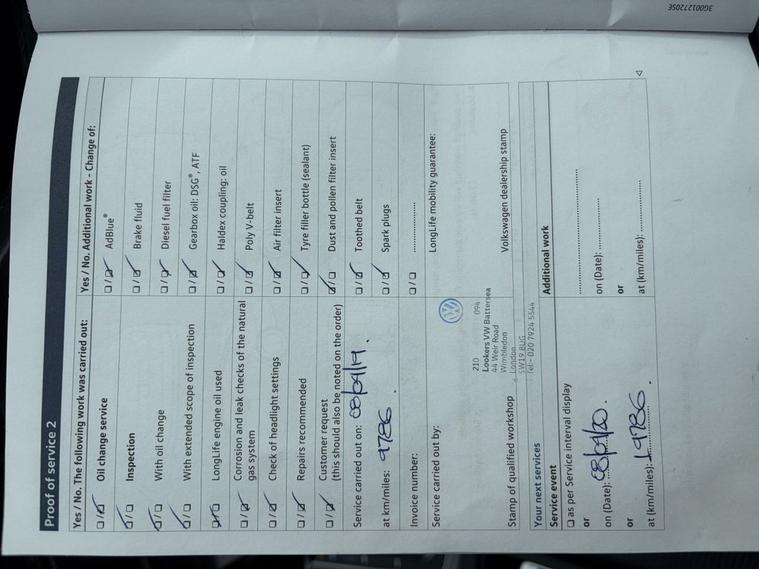 Proof of service 2
Yes / No. The following work was carried out:
Oil change service
Inspection
With oil change
With extended scope of inspection
LongLife engine oil used
Corrosion and leak checks of the natural
gas system
Check of headlight settings
Repairs recommended
Customer request
(this should also be noted on the order)
Service carried out on: 08/09/19.
at km/miles: 9786
Invoice number:
Service carried out by:
210 094
Lookers VW Battersea
44 Weir Road
Wimbledon
London
SW19 8UG
Tel:- 020 7924 5544
Stamp of qualified workshop
Yes / No. Additional work - Change of:
AdBlue®
Brake fluid
Diesel fuel filter
Gearbox oil: DSG®, ATF
Haldex coupling: oil
Poly V-belt
Air filter insert
Tyre filler bottle (sealant)
Dust and pollen filter insert
Toothed belt
Spark plugs
LongLife mobility guarantee:
Volkswagen dealership stamp
Your next services
Service event
as per Service interval display
or
on (Date): 08/09/20.
or
at (km/miles): 19786.
Additional work
on (Date):
or
at (km/miles):
3G0012720SE